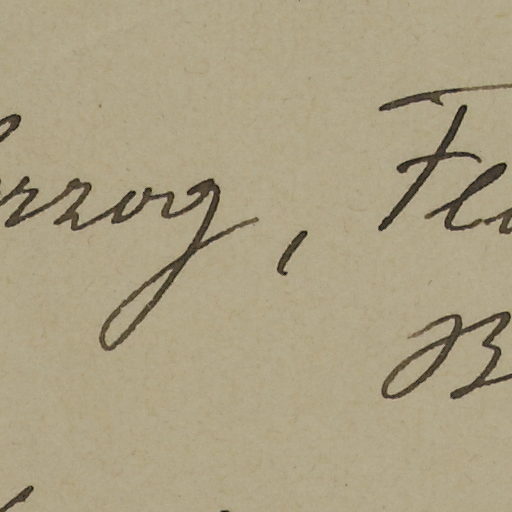 erzog, Fl
B